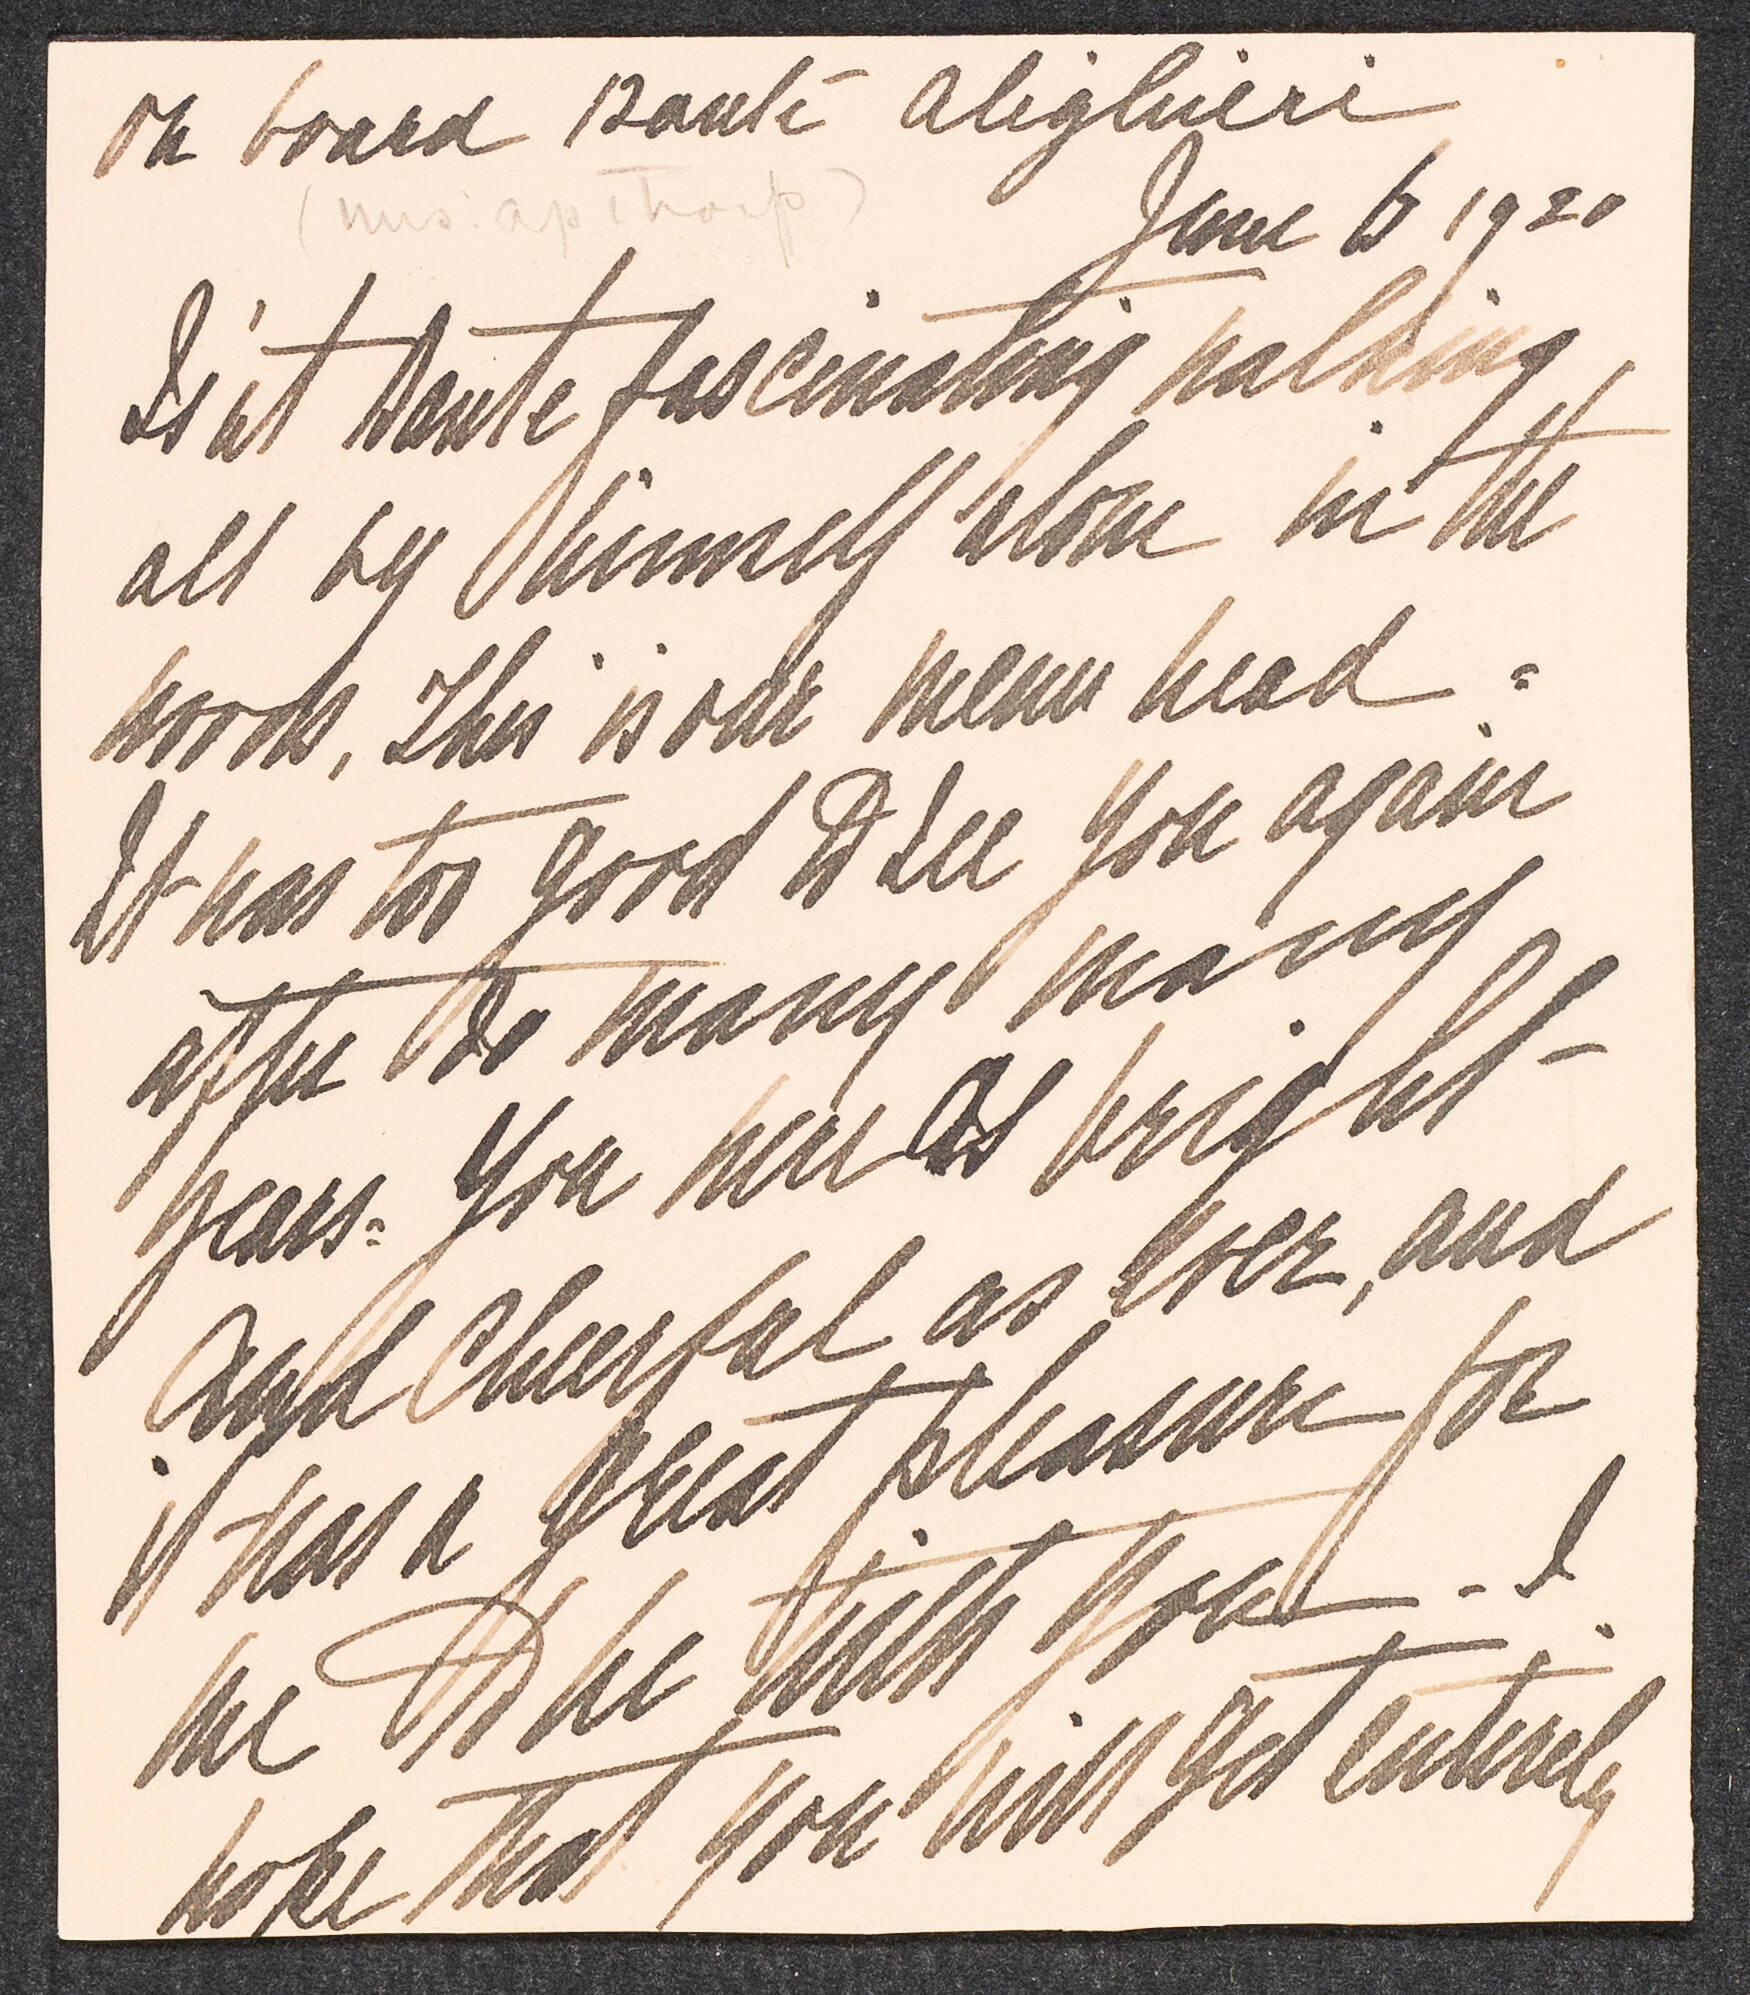 On board Dante Alighieri
(Mrs. Apthorp)
June 6 1920
Is'nt Dante fascinating walking
all by himself alone in the
woods, This is our menu head =
It was too good to see you again
after so many many
years = You were as bright
and cheerful as ever, and
it was a great pleasure for
me to be with you - I
hope that you will get entirely